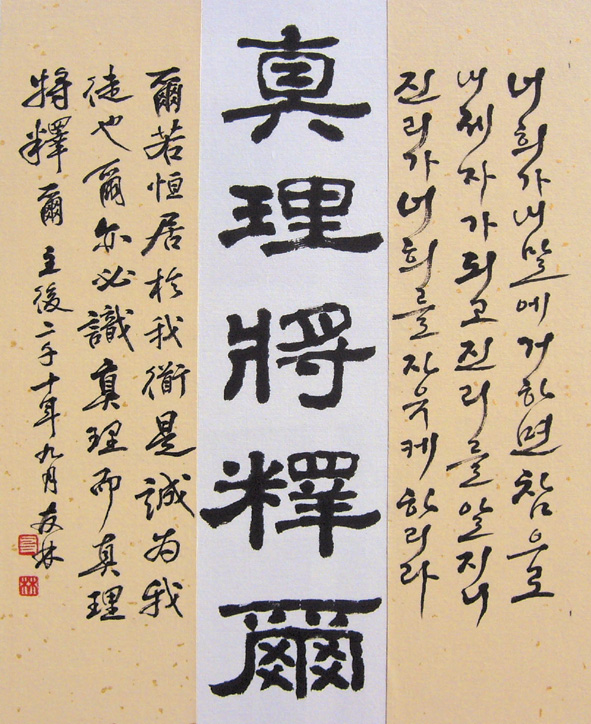 너희가내말에거하면참으로
내제자가되고진리를알지니
진리가너희를자유케하리라
真理將釋爾
爾若恒居於我衜是誠为我
徒也爾亦必識真理而真理
將釋爾 主後二千十年九月 友林